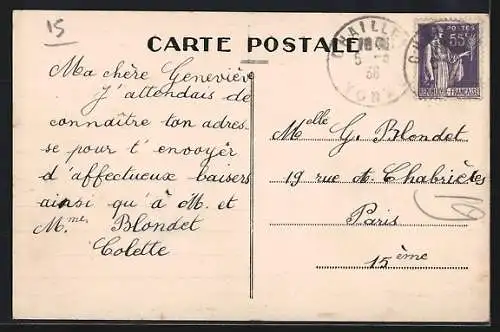 15
CARTE POSTALE
Ma chère Geneviève
J'attendais de
connaître ton adres-
se pour t'envoyer
d'affectueux baisers
ainsi qu'à M. et
M.me Blondet
Colette
CHAILLEY
5 - 8
38
YONNE
55c
REPUBLIQUE FRANÇAISE
Melle G. Blondet
19 rue de Chabrières
Paris
15ème